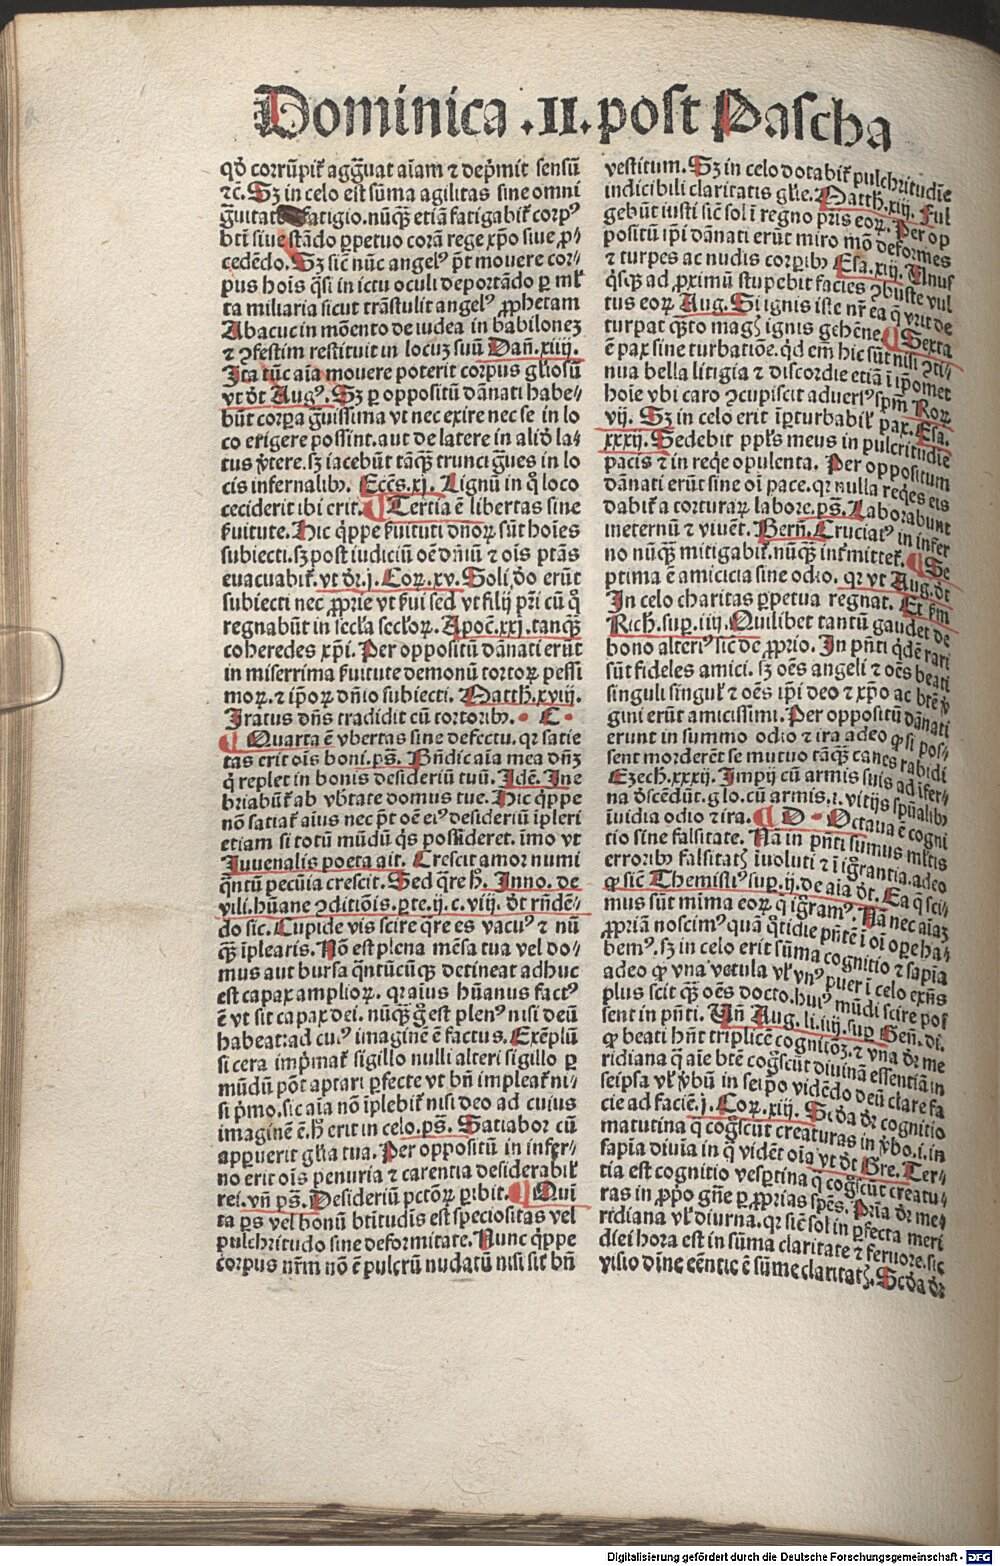 Dominica .II. post Pascha
qð corrũpiť aggͣuat aĩam ⁊ dep̃mit sensũ
⁊c̃. Sꝫ in celo est sũma agilitas sine omni
gͣuitate fatigio. nũqꝫ etiã fatigabiť corpꝰ
bti͂ siue stãdo ꝑpetuo corã rege xp̃o siue ꝓ⸗
cedẽdo. Sꝫ sic̃ nũc angelꝰ p̃t mouere cor⸗
pus hoı̃s qͣsi in ictu oculi deportãdo ꝑ ml̃
ta miliaria sicut trãstulit angelꝰ ꝓphetam
Abacuc in mõento de iudea in babiloneꝫ
⁊ ꝯfestim restituit in locuꝫ suũ Dañ. xiiij.
Ita tũc aĩa mouere poterit corpus gl̃iosũ
vt dt̃ Augꝰ. Sꝫ ꝑ oppositũ dãnati habe⸗
bũt corꝑa gͣuissima vt nec exire nec se in lo
co erigere possint. aut de latere in aliđ la⸗
tus v̾tere. sꝫ iacebũt tãqꝫ trunci gͣues in lo
cis infernalibꝫ. Ecc̃s. xj. Lignũ in qͦ loco
ceciderit ibi erit. ¶ Tertia ẽ libertas sine
ẜuitute. Hic qͥppe ẜuituti dñoꝝ sũt hoı̃es
subiecti. sꝫ post iudiciũ oẽ dñiũ ⁊ oı̃s ptãs
euacuabiť. vt dr̃. j. Coꝝ. xv. Soli ð̾o erũt
subiecti nec ꝓprie vt ẜui sed vt filij pr̃i cũ qͦ
regnabũt in secl̃a secl̃oꝝ. Apoc̃. xxj. tanqꝫ
coheredes xp̃i. Per oppositũ dãnati erũt
in miserrima ẜuitute demonũ tortoꝝ pessi
moꝝ. ⁊ ip̃oꝝ dñio subiecti. Matth. xviij.
Iratus dñs tradidit eũ tortoribꝫ. • C •
¶ Quarta ẽ vbertas sine defectu. qꝛ satie
tas erit oı̃s boni. ps̃. Bñdic aĩa mea dñꝫ
q̃ replet in bonis desideriũ tuũ. Idẽ. Ine
briabũť ab vb̾tate domus tue. Hic qͥppe
nõ satiať aı̃us nec p̃t oẽ eiꝰ desideriũ ı̃pleri
etiam si totũ mũdũ qͥs possideret. ı̃mo vt
Iuuenalis poeta ait. Crescit amor numi
qͣntũ pecũia crescit. Sed qͣre h̾. Inno. de
vili. hũane ꝯditiõis. ꝑte. ij. c. viij. dt̃ rñdẽ⸗
do sic. Cupide vis scire qͣre es vacuꝰ ⁊ nũ
qꝫ ı̃plearis. Nõ est plena mẽsa tua vel do⸗
mus aut bursa qͣntũcũqꝫ detineat adhuc
est capax amplioꝝ. qꝛ aı̃us hũanus factꝰ
ẽ vt sit capax dei. nũqꝫ g̾ est plenꝰ nisi deũ
habeat: ad cuiꝰ imaginẽ ẽ factus. Exẽplũ
si cera imp̃mať sigillo nulli alteri sigillo ꝑ
mũdũ põt aptari ꝑfecte vt bñ impleať ni⸗
si p̃mo. sic aĩa nõ ı̃plebiť nisi deo ad cuius
imaginẽ ẽ. h̾ erit in celo. ps̃. Satiabor cũ
apꝑuerit gl̃ia tua. Per oppositũ in infer⸗
no erit oı̃s penuria ⁊ carentia desiderabiľ
rei. vñ ps̃. Desideriũ pctõꝝ ꝑibit. ¶ Quı̃
ta ꝑs vel bonũ bti͂tudis est speciositas vel
pulchritudo sine deformitate. Nunc qͥppe
corpus nr̃m nõ ẽ pulcrũ nudatũ nisi sit bñ
vestitum. Sꝫ in celo dotabiť pulchritudı̃e
indicibili claritatis gl̃ie. Matth. xiij. Ful
gebũt iusti sic̃ sol ı̃ regno pr̃is eoꝝ. Per op
positũ ip̃i dãnati erũt miro mõ deformes
⁊ turpes ac nudis corꝑibꝫ Esa. xiij. Unus
qͥsqꝫ ad ꝓximũ stupebit facies ꝯbuste vul
tus eoꝝ Aug. Si ignis iste nr̃ ea q̃ vrit de
turpat qͣto magꝫ ignis gehẽne. ¶ Sexta
ẽ pax sine turbatiõe. qd̾ em̃ hic sũt nisi ꝯti⸗
nua bella litigia ⁊ discordie etiã ı̃ ip̃omet
hoı̃e vbi caro ꝯcupiscit aduersꝰ spm̃ Roꝝ
vij. Sꝫ in celo erit ı̃ꝑturbabiľ pax. Esa.
xxxij. Sedebit ppľs meus in pulcritudı̃e
pacis ⁊ in reqͥe opulenta. Per oppositum
dãnati erũt sine oı̃ pace. qꝛ nulla reqͥes eis
dabiť a torturaꝝ labore. ps̃. Laborabunt
ineternũ ⁊ viuẽt. Berñ. Cruciatꝰ in infer
no nũqꝫ mitigabiť. nũqꝫ int̾mitteť. ¶ Se
ptima ẽ amicicia sine odio. qꝛ vt Aug. dt̃
In celo charitas ꝑpetua regnat. Et ẜm
Rich. sup. iiij. Quilibet tantũ gaudet de
bono alteriꝰ sic̃ de ꝓprio. In pñti qͥdẽ rari
sũt fideles amici. sꝫ oẽs angeli ⁊ oẽs beati
singuli singuľ ⁊ oẽs ip̃i deo ⁊ xp̃o ac btẽ v̾
gini erũt amicissimi. Per oppositũ dãnati
erunt in summo odio ⁊ ira adeo ꝙ si pos⸗
sent morderẽt se mutuo tãqꝫ canes rabidi
Ezech. xxxij. Impij cũ armis suis ad ı̃fer⸗
na descẽdũt. glo. cũ armis. i. vitijs spũalibꝫ
ı̃uidia odio ⁊ ira. ¶ D • Octaua ẽ cogni
tio sine falsitate. Nã in pñti sumus ml̃tis
erroribꝫ falsitatꝫ ı̃uoluti ⁊ ı̃ igͦrantia. adeo
ꝙ sic̃ Themistiꝰ sup. ij. de aĩa dt̃. Ea q̃ sci⸗
mus sũt mı̃ma eoꝝ q̃ igͦramꝰ. Nã nec aĩaꝫ
ꝓpriã noscimꝰ quã qͦtidie pñtẽ ı̃ oı̃ oꝑe ha⸗
bemꝰ. sꝫ in celo erit sũma cognitio ⁊ sapı̃a
adeo ꝙ vna vetula vľ vnꝰ puer ı̃ celo exñs
plus scit qꝫ oẽs docto. huiꝰ mũdi scire pos
sent in pñti. Vñ Aug. li. iiij. sup Geñ. di.
ꝙ beati hñt triplicẽ cognitiõꝫ. ⁊ vna dr̃ me
ridiana q̃ aı̃e btẽ cogͦscũt diuinã essentiã in
seipsa vľ v̾bũ in seip̃o vidẽdo deũ clare fa
cie ad faciẽ. j. Coꝝ. xiij. Scđa dr̃ cognitio
matutina q̃ cogͦscũt creaturas in v̾bo. i. in
sapı̃a diuı̃a in q̃ vidẽt oı̃a vt dt̃ Gre. Ter⸗
tia est cognitio vesꝑtina q̃ cogͦscũt creatu⸗
ras in ꝓpo gñe ꝑ ꝓprias spẽs. Pria dr̃ me⸗
ridiana vľ diurna. qꝛ sic̃ sol in ꝑfecta meri
diei hora est in sũma claritate ⁊ feruore. sic
visio diı̃e eẽntie ẽ sũme claritatꝫ. Scđa dr̃
Digitalisierung gefördert durch die Deutsche Forschungsgemeinschaft - DFG